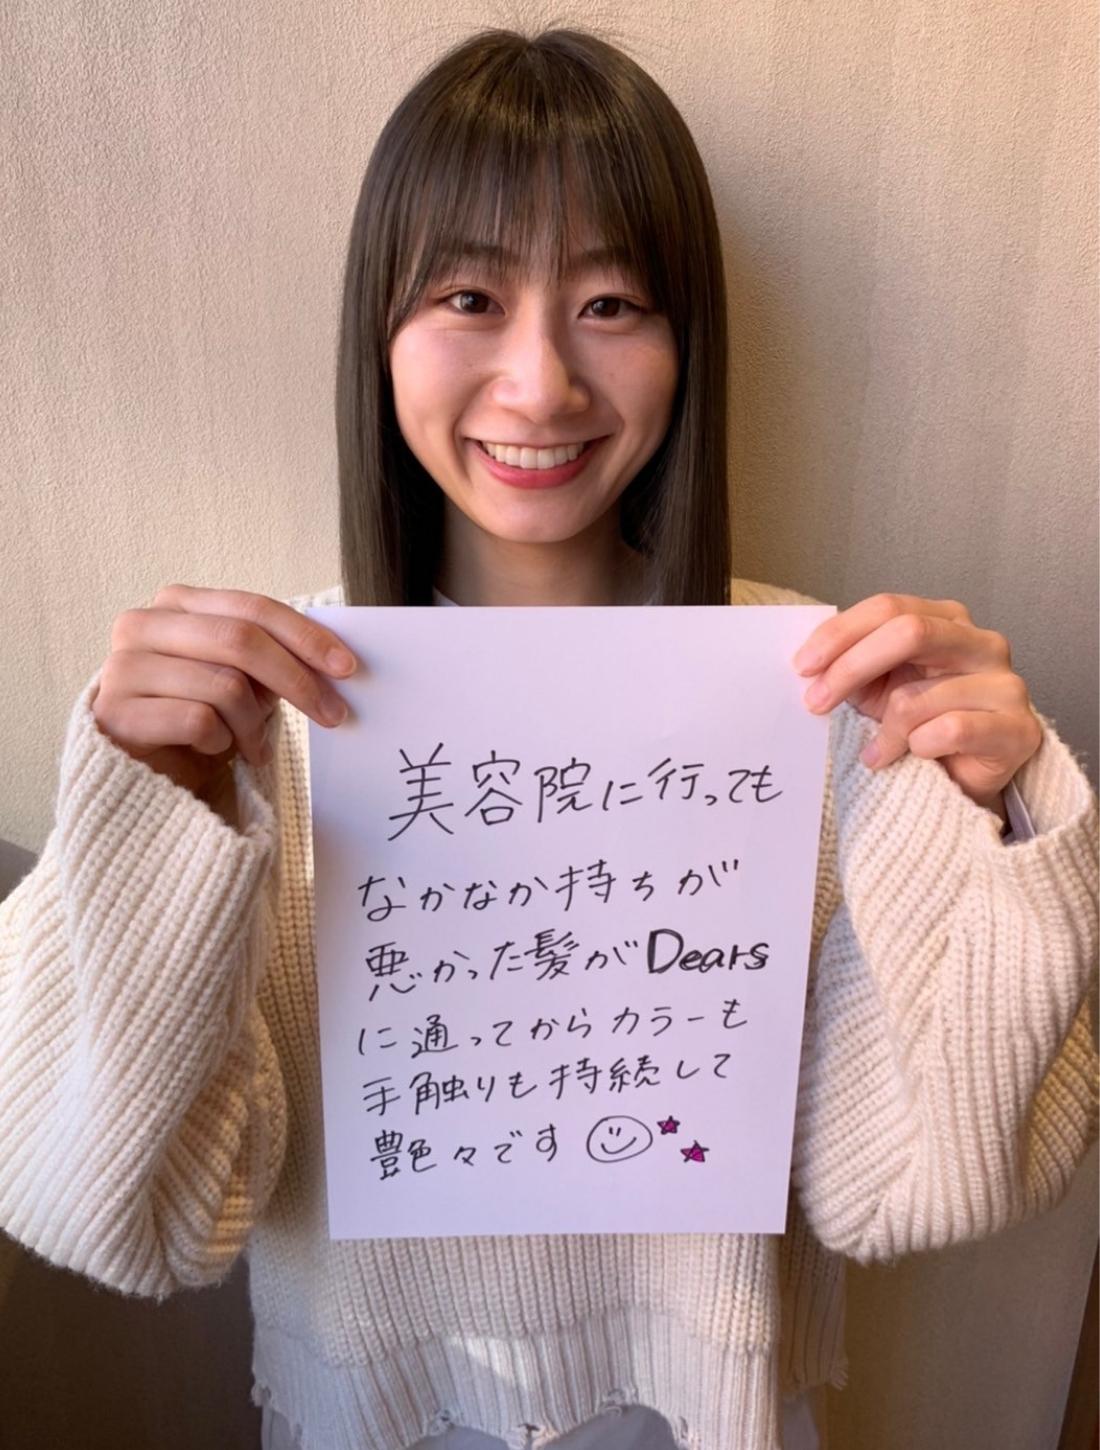 美容院に行っても
なかなか持ちが
悪かった髪がDears
に通ってからカラーも
手触りも持続して
艶々です